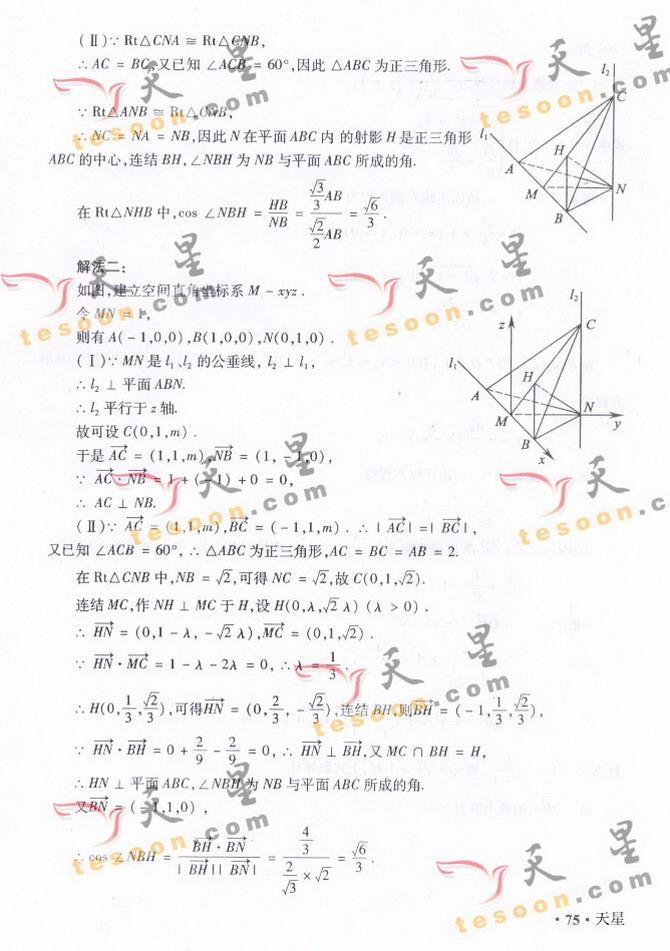 (Ⅱ)∵ Rt△CNA ≅ Rt△CNB,
∴ AC = BC,又已知 ∠ACB = 60°,因此 △ABC 为正三角形.
∵ Rt△ANB ≅ Rt△CNB,
∴ NC = NA = NB,因此 N 在平面 ABC 内 的射影 H 是正三角形
ABC 的中心,连结 BH,∠NBH 为 NB 与平面 ABC 所成的角.
在 Rt△NHB 中,cos ∠NBH = HB/NB = (√3/3 AB)/(√2/2 AB) = √6/3 .
l₂
C
l₁
H
A
M
N
B
解法二:
如图,建立空间直角坐标系 M - xyz .
令 MN = 1,
则有 A( - 1,0,0) ,B(1,0,0) ,N(0,1,0) .
(Ⅰ)∵ MN 是 l₁、l₂ 的公垂线, l₂ ⊥ l₁,
∴ l₂ ⊥ 平面 ABN.
∴ l₂ 平行于 z 轴.
故可设 C(0,1,m) .
于是 AC→ = (1,1,m) ,NB→ = (1, - 1,0) ,
∵ AC→ · NB→ = 1 + ( - 1) + 0 = 0,
∴ AC ⊥ NB.
l₂
z
C
l₁
H
A
M
N
y
B
x
(Ⅱ)∵ AC→ = (1,1,m),BC→ = ( - 1,1,m) . ∴ | AC→ | = | BC→ | ,
又已知 ∠ACB = 60°, ∴ △ABC 为正三角形,AC = BC = AB = 2.
在 Rt△CNB 中,NB = √2,可得 NC = √2,故 C(0,1,√2).
连结 MC,作 NH ⊥ MC 于 H,设 H(0,λ,√2 λ) (λ > 0) .
∴ HN→ = (0,1 - λ, - √2 λ),MC→ = (0,1,√2) .
∵ HN→ · MC→ = 1 - λ - 2λ = 0, ∴ λ = 1/3 .
∴ H(0,1/3,√2/3),可得HN→ = (0,2/3, - √2/3),连结 BH,则BH→ = ( - 1,1/3,√2/3),
∵ HN→ · BH→ = 0 + 2/9 - 2/9 = 0, ∴ HN→ ⊥ BH→,又 MC ∩ BH = H,
∴ HN ⊥ 平面 ABC, ∠NBH 为 NB 与平面 ABC 所成的角.
又BN→ = ( - 1,1,0) ,
∴ cos ∠NBH = (BH→ · BN→)/(| BH→ | | BN→ |) = (4/3)/(2/√3 × √2) = √6/3 .
· 75 · 天星
天星
tesoon.com
天星
tesoon.com
天星
tesoon.com
天星
tesoon.com
天星
tesoon.com
天星
tesoon.com
天星
tesoon.com
天星
tesoon.com
天星
tesoon.com